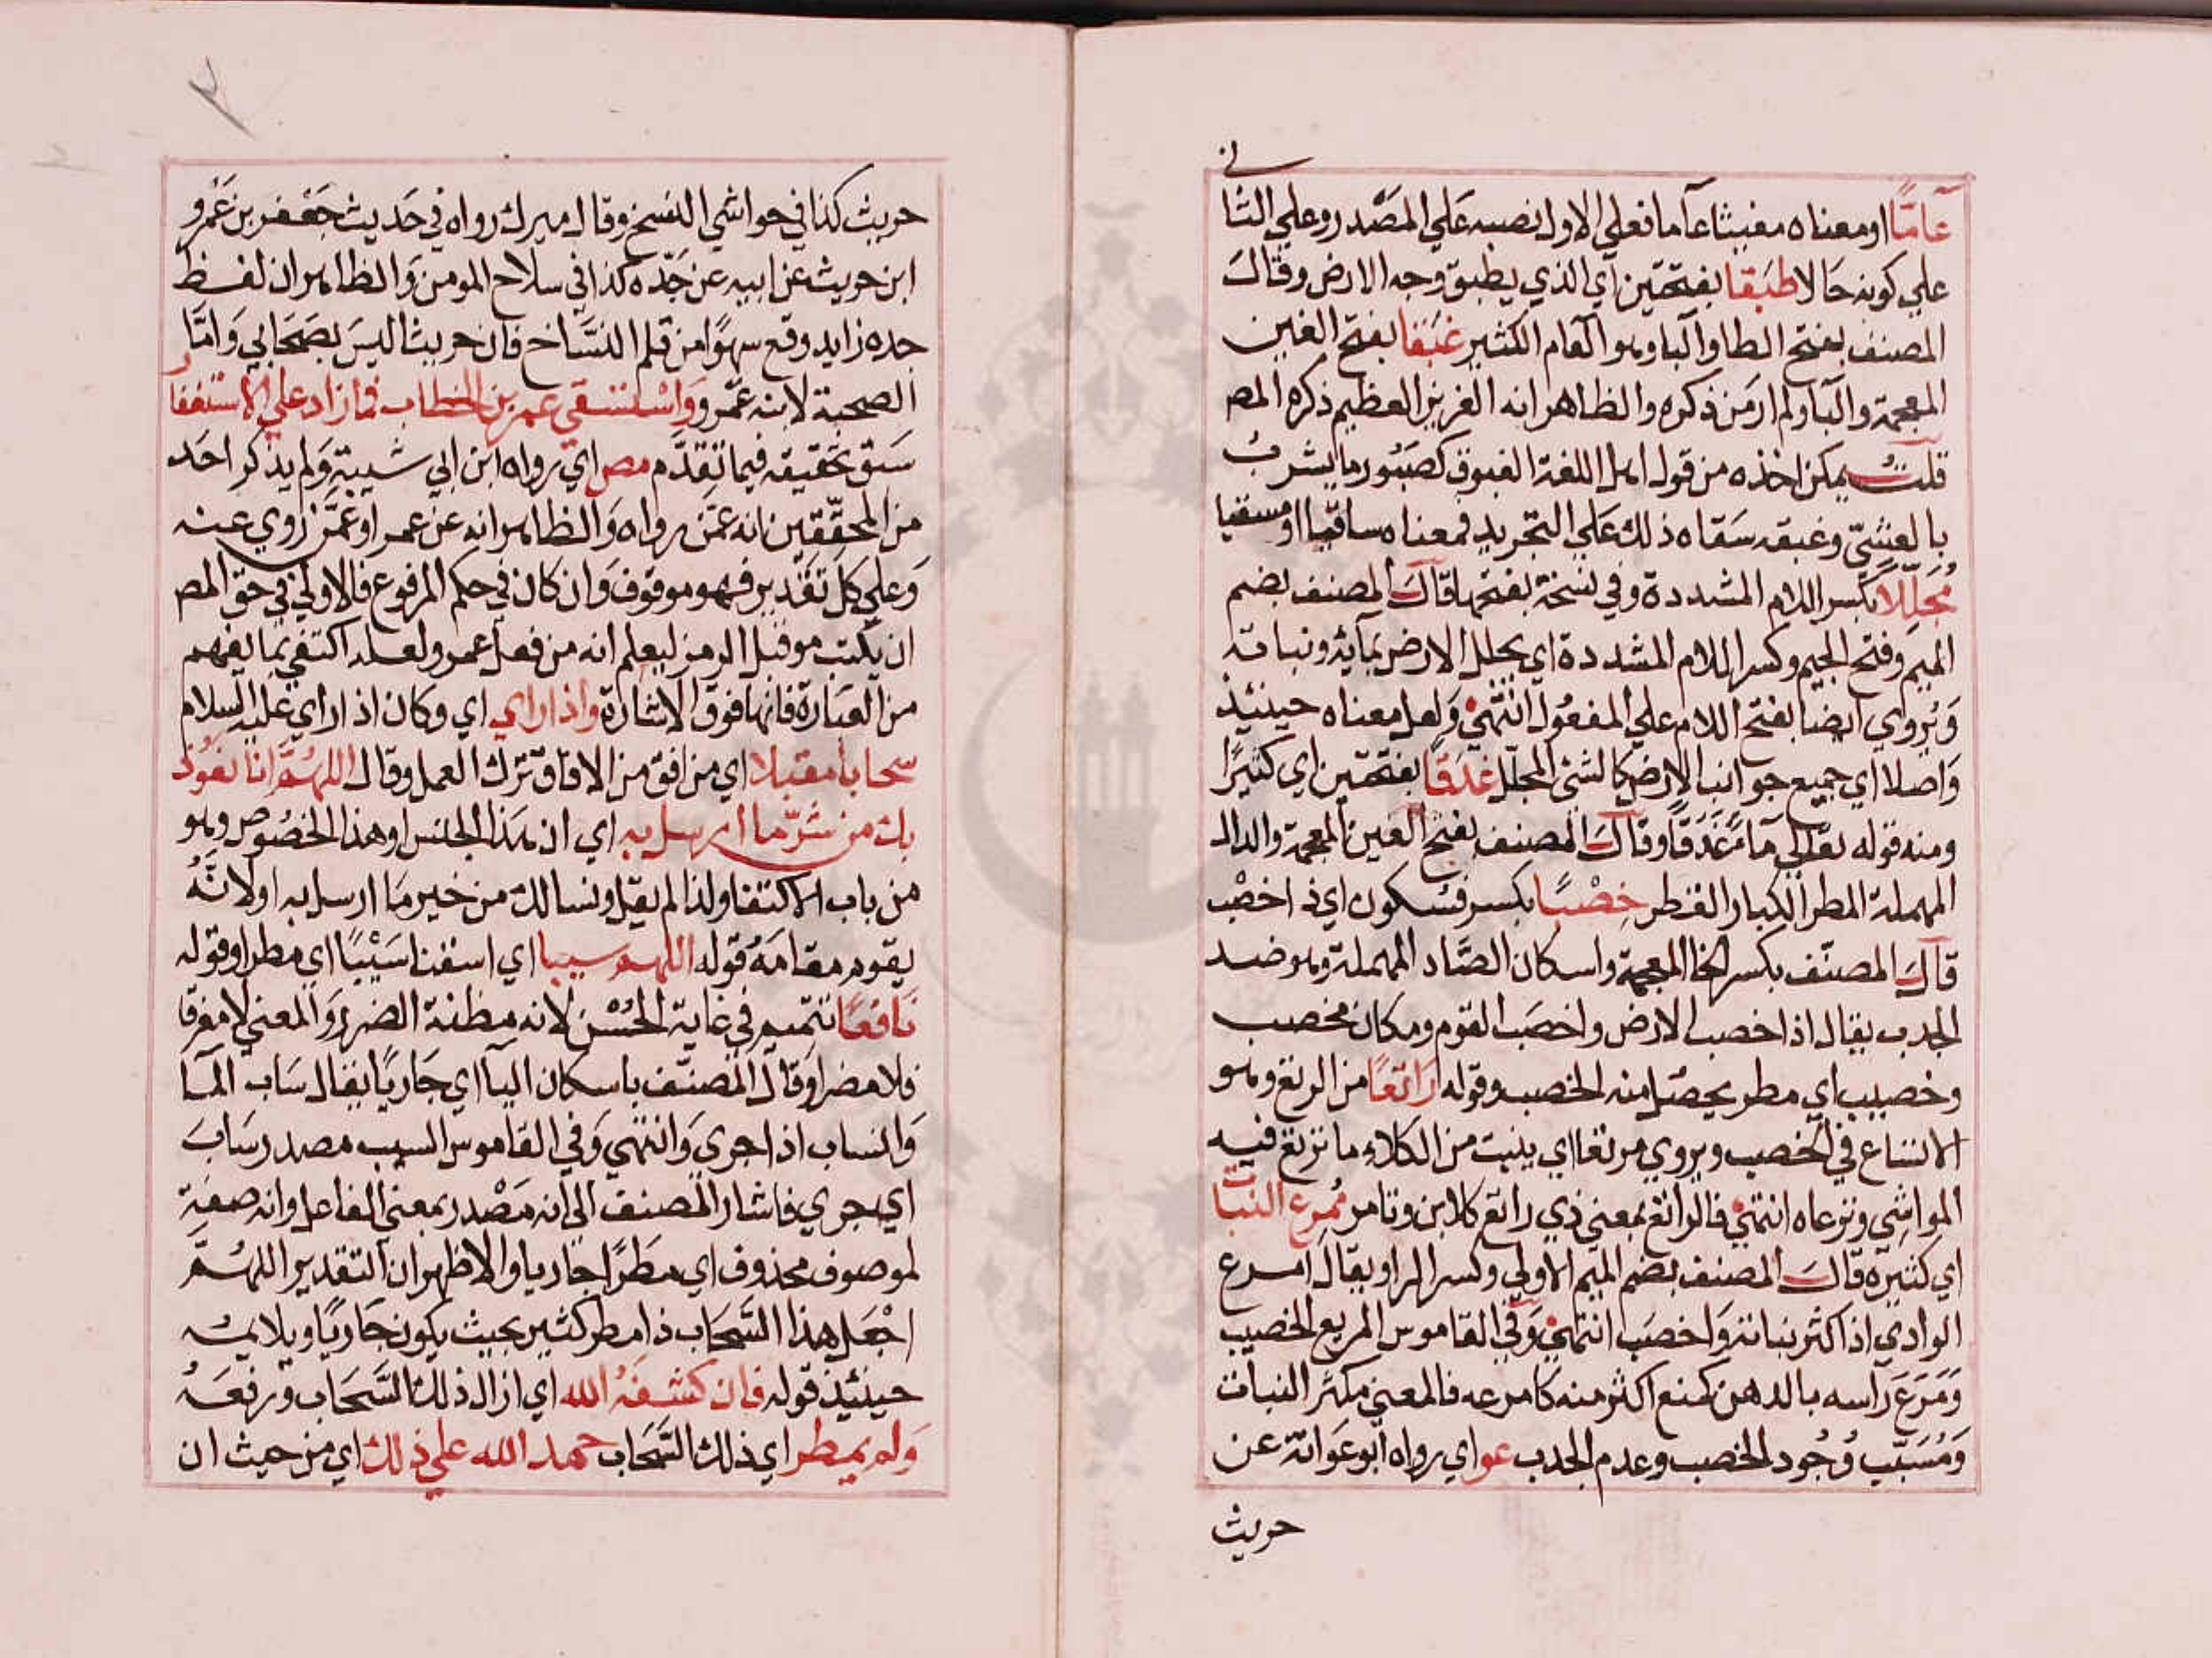 ني
عامًّا او معناه مغيثا عاما فعلي الاول نصبه علي المصدر وعلي الثا
علي كونه حالا طبقا بفتحتين اي الذي يطبق وجه الارض وقال
المصنف بفتح الطا والبا وهو العام الكثير غبقا بفتح الغين
المعجمة والبا ولم ار من ذكره والظاهر انه الغزير العظيم ذكره المص
قلت يمكن اخذه من قول اهل اللغة الغبوق كصبور ما يشرب
بالعشيّ وغبقه سقاه ذلك علي التجريد فمعناه ساقيا او مسقيا
مُجلِّلًا بكسر اللام المشددة وفي نسخة بفتحها قال المصنف بضم
الميم وفتح الجيم وكسر اللام المشددة اي يجلل الارض بمائه ونباته
ويُروي ايضا بفتح اللام علي المفعول انتهي ولعل معناه حينئذ
واصلا اي جميع جوانب الارض كالشئ المجلل غدقًا بفتحتين اي كثيرًا
ومنه قوله تعالي مآءً غدقًا وقال المصنف بفتح الغين المعجمة والدال
المهملة المطر الكبار القطر خِصْبًا بكسر فسكون اي ذا خصب
قال المصنّف بكسر الخا المعجمة واسكان الصّاد المهملة وهو ضد
الجدب يقال اذا اخصب الارض واخصب القوم ومكان مخصب
وخصيب اي مطر يحصل منه الخصب وقوله راتعًا من الرتع وهو
الاتساع في الخصب ويروي مرتعا اي ينبت من الكلاء ما ترتع فيه
المواشي وترعاه انتهي فالراتع بمعني ذي راتع كلابن وتامر مُمرِع النبات
اي كثيره قال المصنف بضم الميم الاولي وكسر الرا ويقال امرع
الوادي اذا كثر نباته واخصب انتهي وفي القاموس المريع الخصيب
ومَرَع راسه بالدهن كمنع اكثر منه كامرعه فالمعني مكثر النبات
ومُسَبّب وُجُود الخصب وعدم الجدب عو اي رواه ابو عوانة عن
حريث
حريث كذا في حواشي النسخ وقال ميرك رواه في حديث جعفر بن عمرو
ابن حريث عن ابيه عن جدّه كذا في سلاح المومن والظاهر ان لفظ
جده زايد وقع سهوًا من قلم النسّاخ فان حريثا ليس بصحابي وامّا
الصحبة لابنه عمرو واستسقي عمر بن الخطاب فما زاد علي الاستغفار
سبق تحقيقه فيما تقدّم مص اي رواه ابن ابي شيبة ولم يذكر احد
من المحقّقين انه عمّن رواه والظاهر انه عن عمر او عمّن روي عنه
وعلي كل تقدير فهو موقوف وان كان في حكم المرفوع فالاولي في حق المص
ان يكتب مو قبل الرمز ليعلم انه من فعل عمر ولعله اكتفي بما يفهم
من العبارة فانها فوق الاشارة واذا راي اي وكان اذا راي عليه السلام
سحابا مقبلا اي من افق من الافاق ترك العمل وقال اللهُمّ انا نعوذ
بك من شرّ ما ارسل به اي ان هذا الجنس او هذا الخصوص وهو
من باب الاكتفا ولذا لم يقل ونسالك من خير ما ارسل به اولا نّه
يقوم مقامه قوله اللهم سيبا اي اسقنا سَيْبًا اي مطرا وقوله
نافعًا تتميم في غاية الحُسْن لانه مظنة الضرر والمعني لا مغرقا
فلا مضرا وقال المصنّف باسكان اليآ اي جاريًا يقال ساب المآ
وانساب اذا جري وانتهي وفي القاموس السيب مصدر ساب
اي جري فاشار المصنف الي انه مَصْدر بمعني الفاعل وانه صفة
لموصوف محذوف اي مطرًا جاريا والاظهر ان التقدير اللهُمّ
اجْعَل هذا السّحاب ذا مطر كثير بحيث يكون جاريًا ويلايمه
حينئذ قوله فان كشفه الله اي ازال ذلك السّحاب ورفعه
ولم يمطر اي ذلك السّحاب حمد الله علي ذلك اي من حيث ان